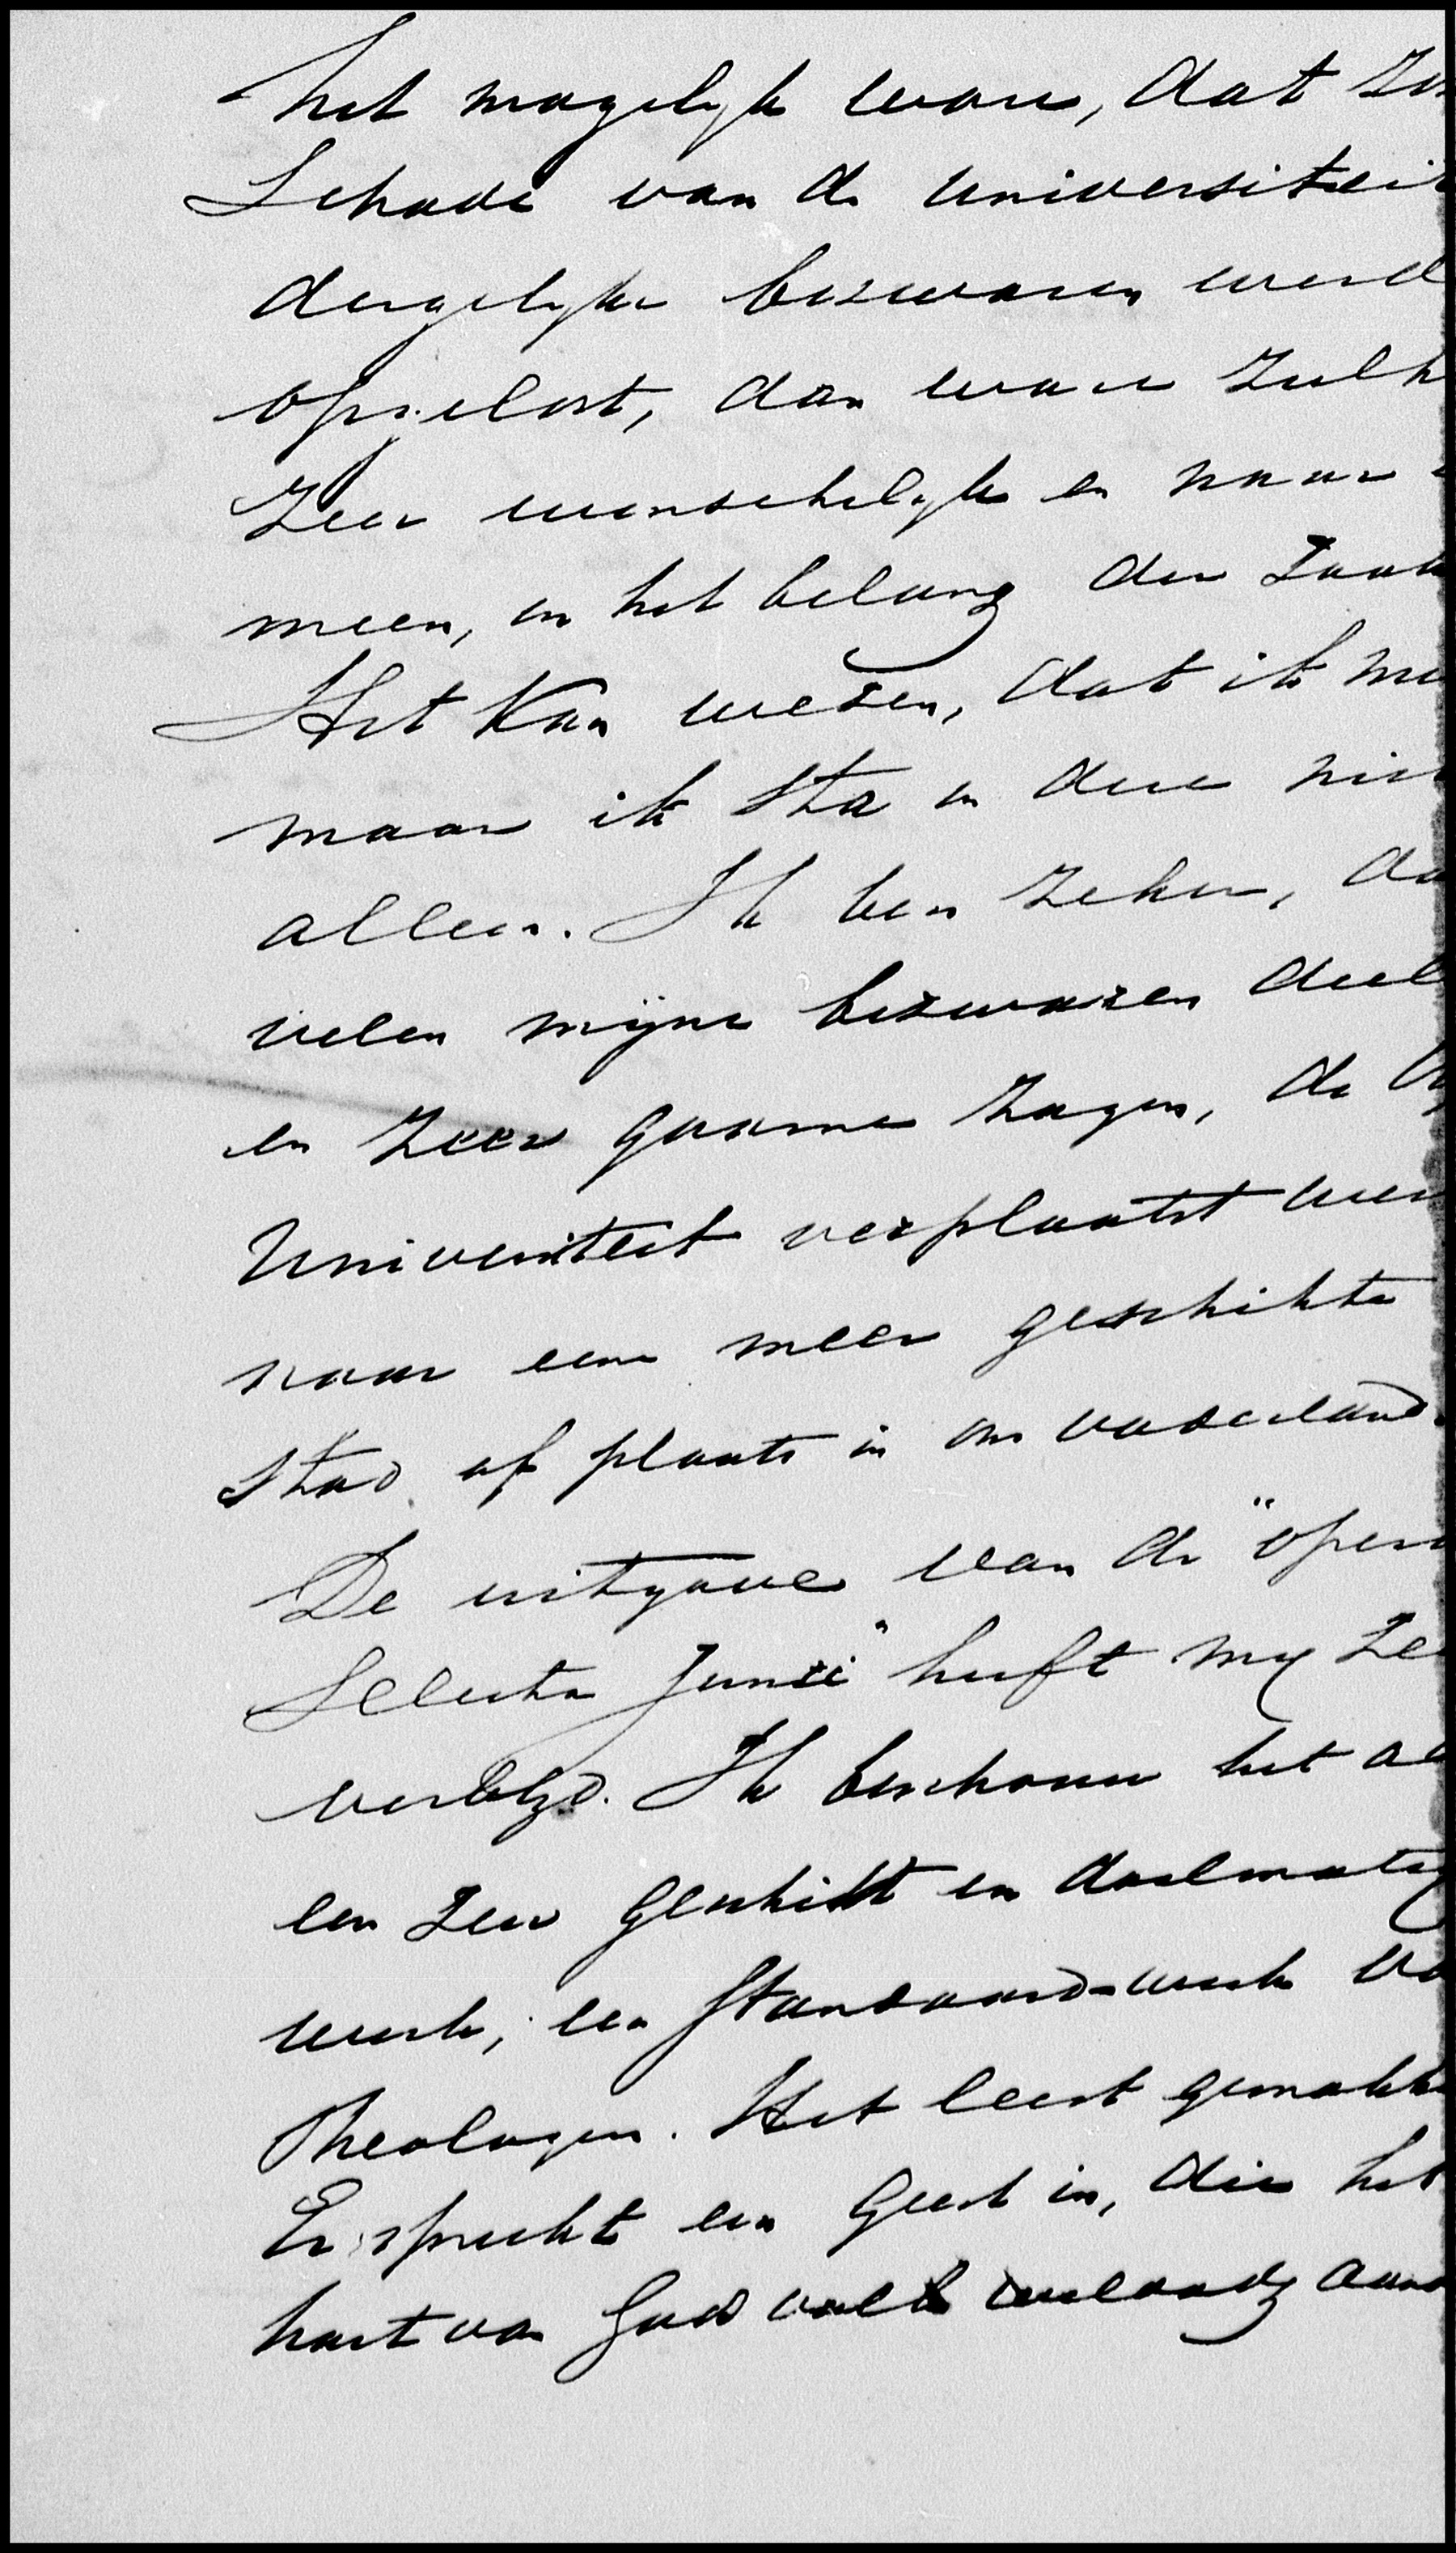 het mogelijk ware, dat zo
Schade van de Universitei
dergelyke bezwaren werd
opgelost, dan ware zulk
Zeer wenschelyk en naar
meen, in het belang der Zaak
Het kan wezen, dat ik
maar ik sta in deze nie
alleen. Ik ben zeker, da
velen mijne bezwaren deel
en zeer gaarne zagen, de
Universiteit verplaatst wer
naar eene meer geschikte
stad of plaats in ons vaderland.
De uitgave van de "opera
Selecta Junii" heeft my Ze
verblyd. Ik beschouw het al
een zeer geschikt en doelmatig
werk, een Standaard-werk vo
Theologen. Het leest gemakk
Er spreekt een Geest in, die het
hart van Gods volk aan